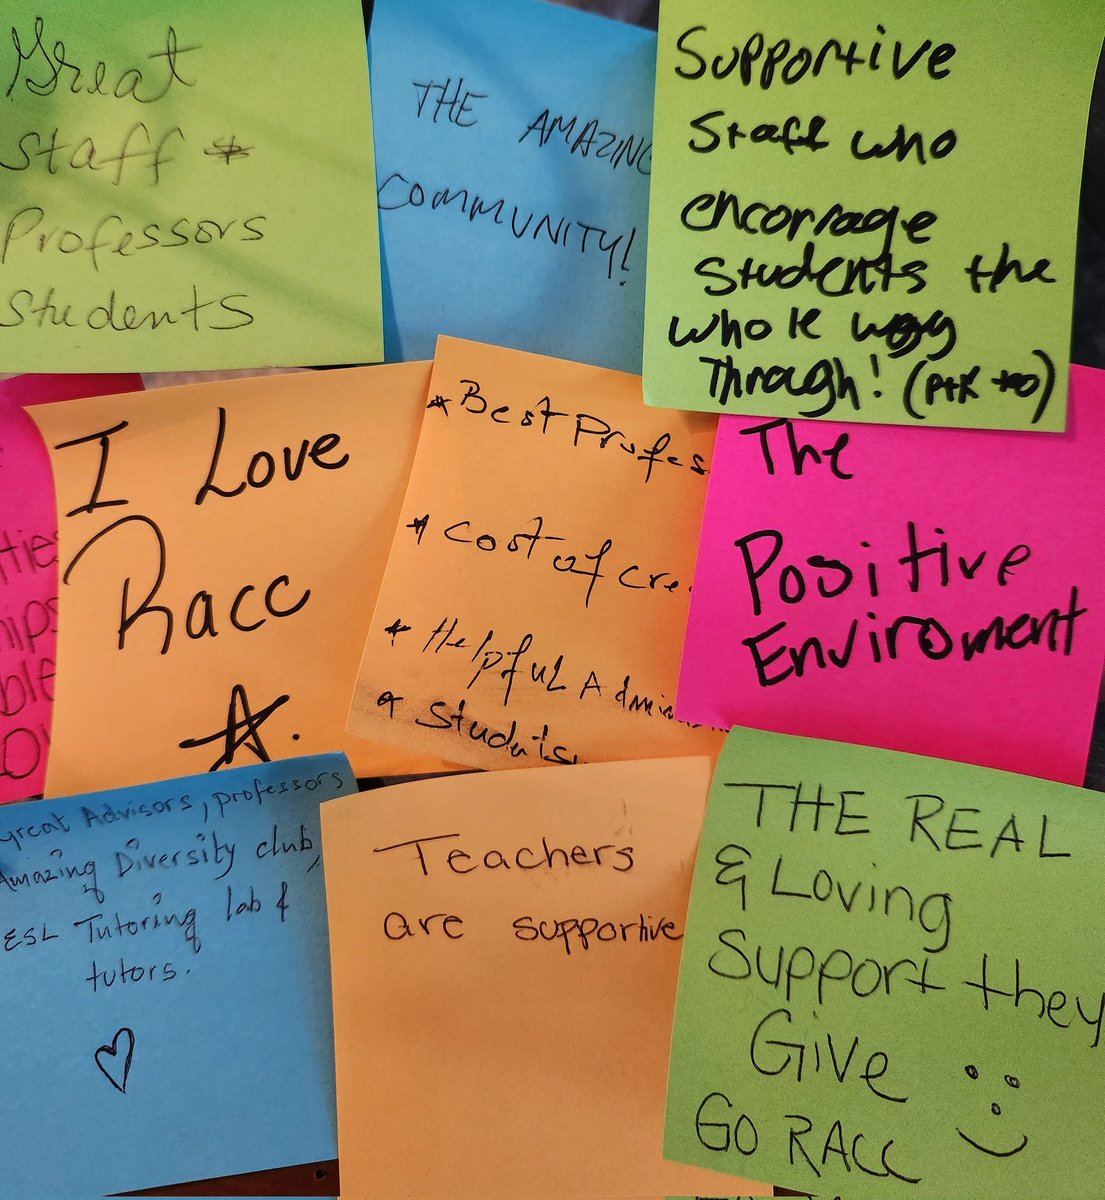 Great
Staff *
Professors
Students
THE AMAZING
COMMUNITY!
Supportive
Staff who
encorrage
students the
whole way
Through! (P+K too)
ties
hips
ble
I Love
Racc
* Best Profes
* Cost of cre
* Helpful Admini
* Students
The
Positive
Enviroment
Great Advisors, professors
Amazing Diversity club,
ESL Tutoring lab &
tutors.
Teachers
are supportive
THE REAL
& Loving
Support they
Give
GO RACC